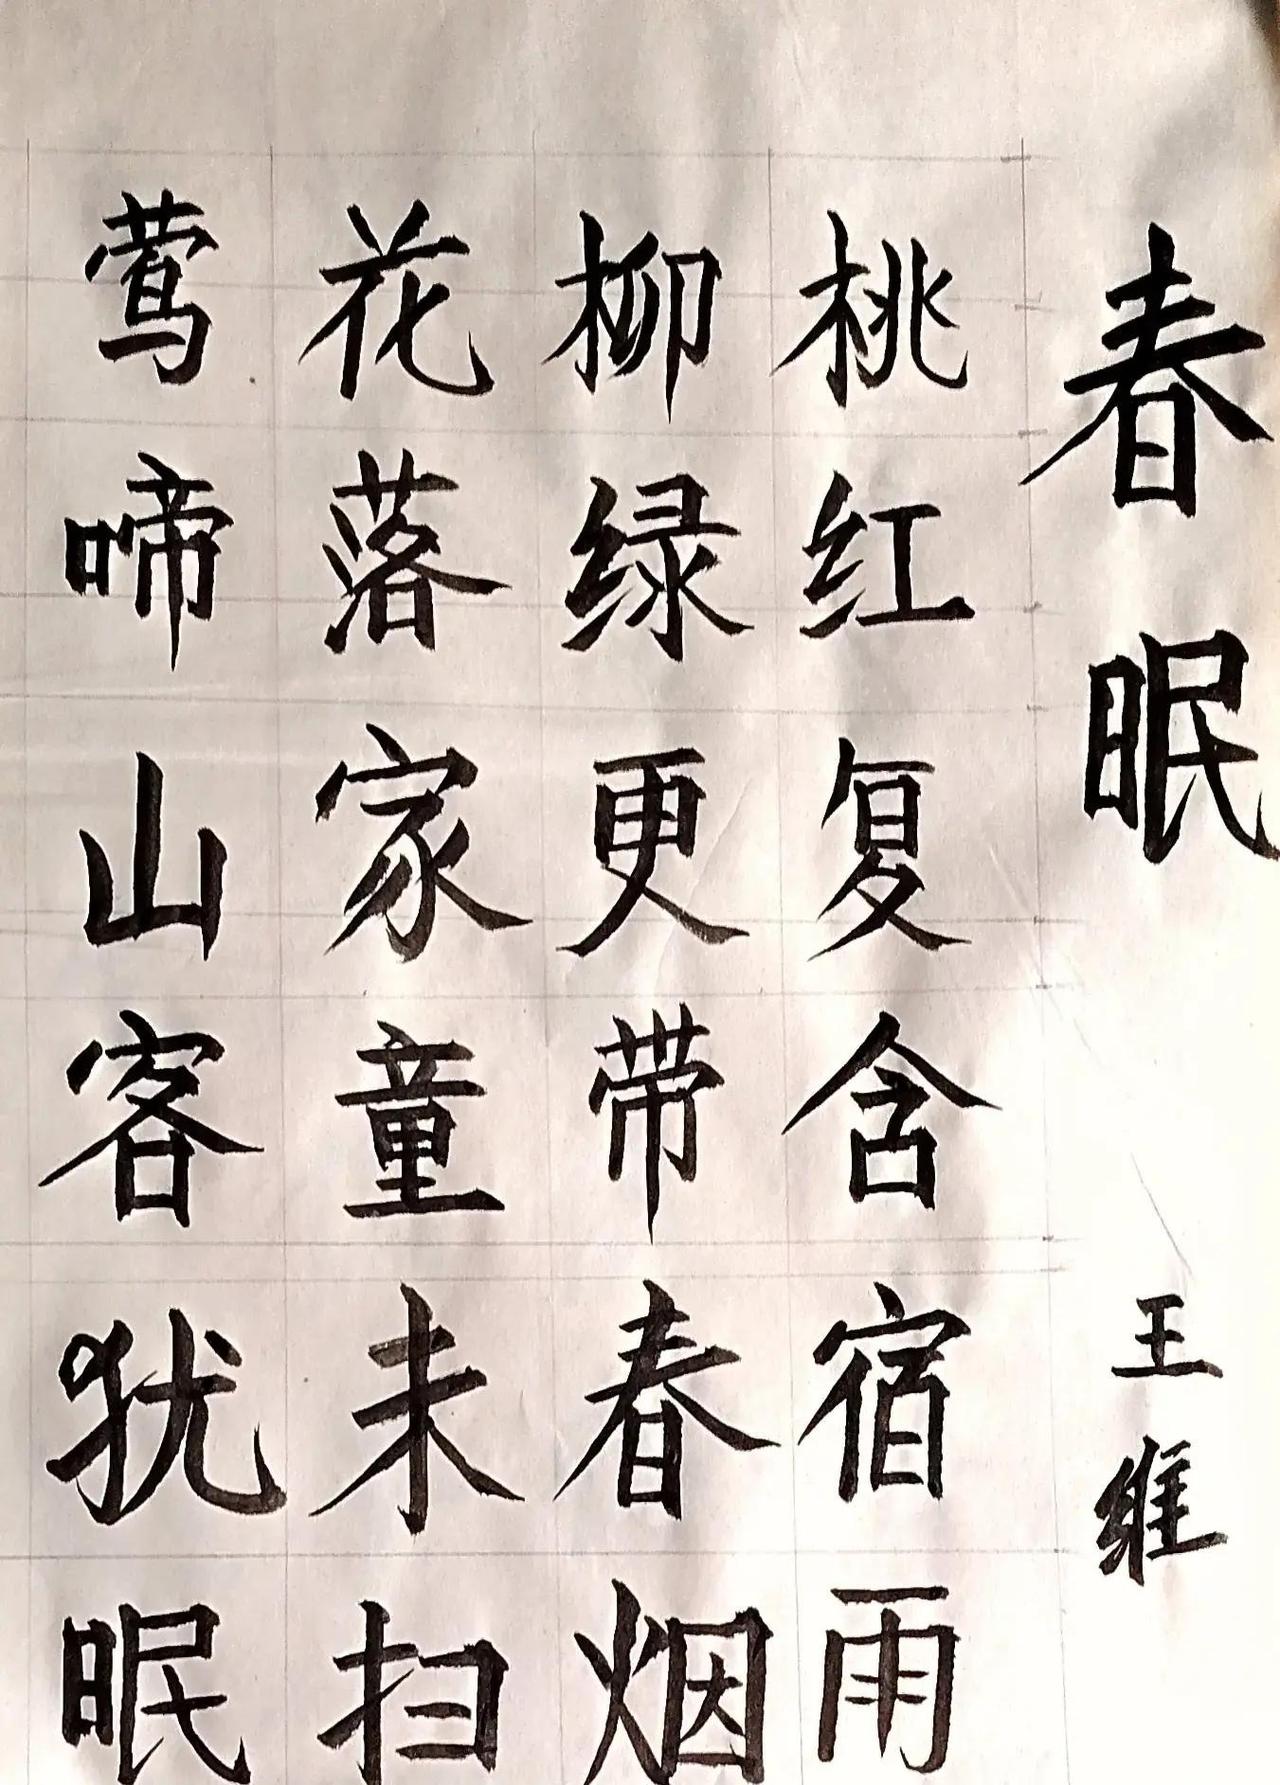 春眠 王维
桃红复含宿雨
柳绿更带春烟
花落家童未扫
莺啼山客犹眠